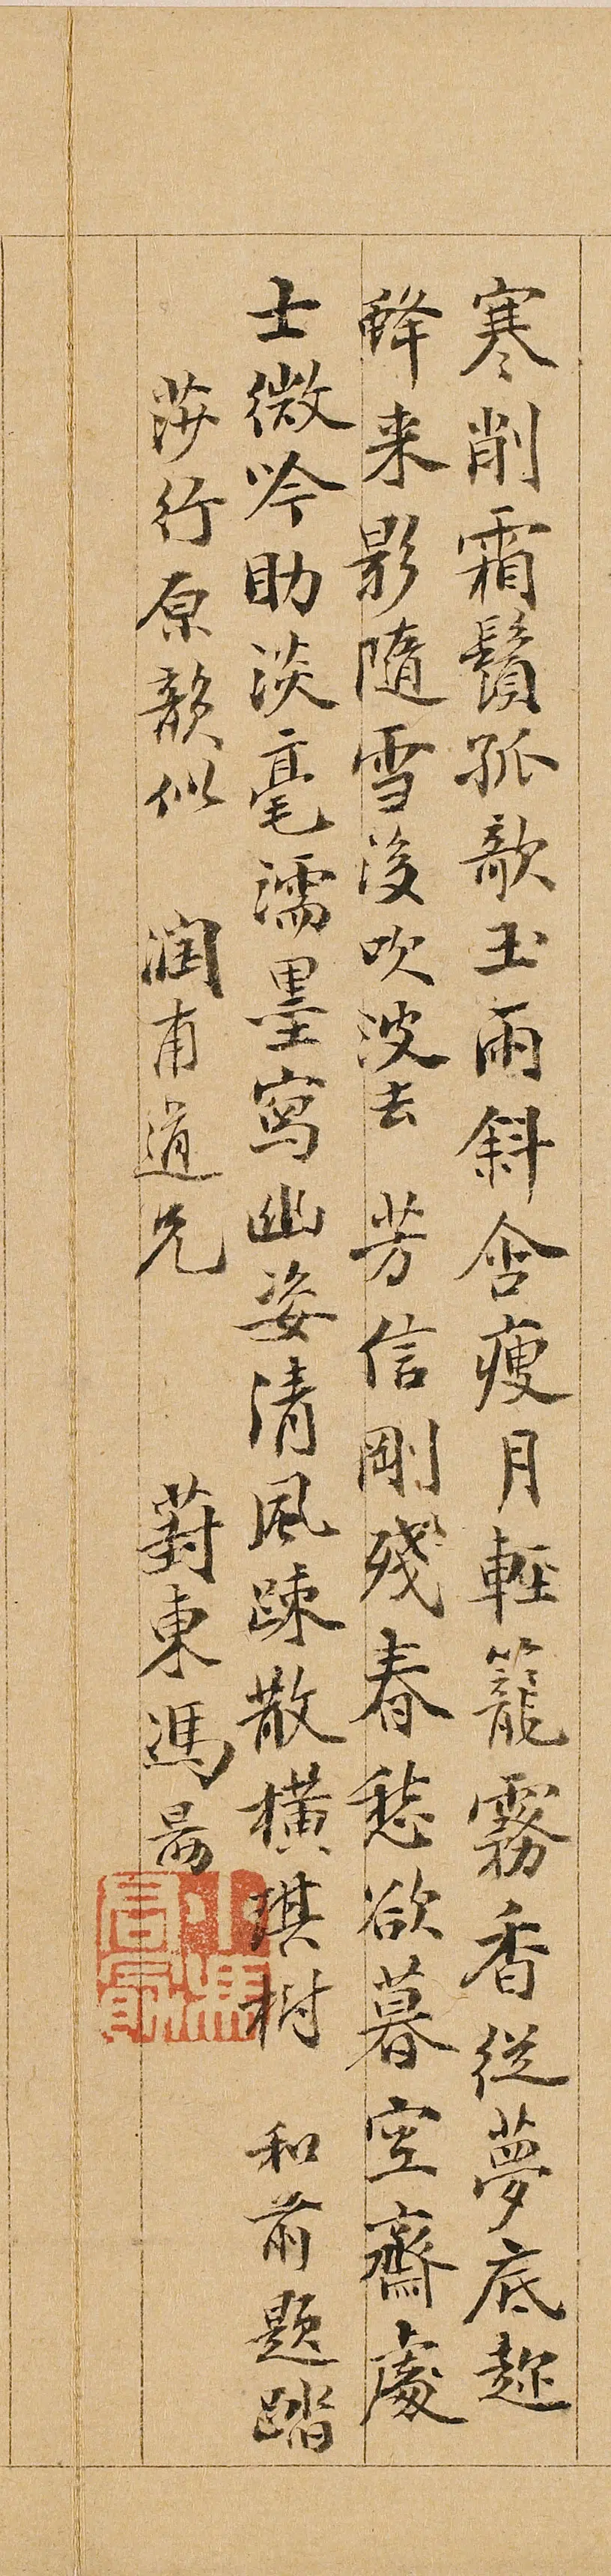 寒削霜鬚孤欹玉雨斜含瘦月輕籠霧香從夢底趂
蜂来影隨雪後吹波去 芳信剛殘春愁欲暮空齋處
士微吟助淡毫濡墨寫幽姿清風踈散橫琪樹 和前題踏
莎行原韻似 潤甫道兄 葑東馮勗